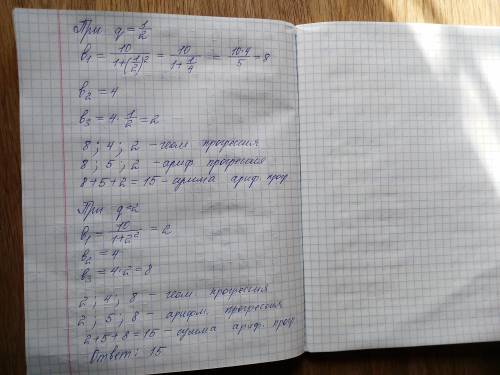 При q = 1/2
b₁ = 10/(1+(1/2)²) = 10/(1+1/4) = 10·4/5 = 8
b₂ = 4
b₃ = 4 · 1/2 = 2
8; 4; 2 - геом. прогрессия
8; 5; 2 - ариф. прогрессия
8+5+2 = 15 - сумма ариф. прогр.
При q=2
b₁ = 10/(1+2²) = 2
b₂ = 4
b₃ = 4·2 = 8
2; 4; 8 - геом. прогрессия
2; 5; 8 - арифм. прогрессия
2+5+8 = 15 - сумма ариф. прогр
Ответ: 15